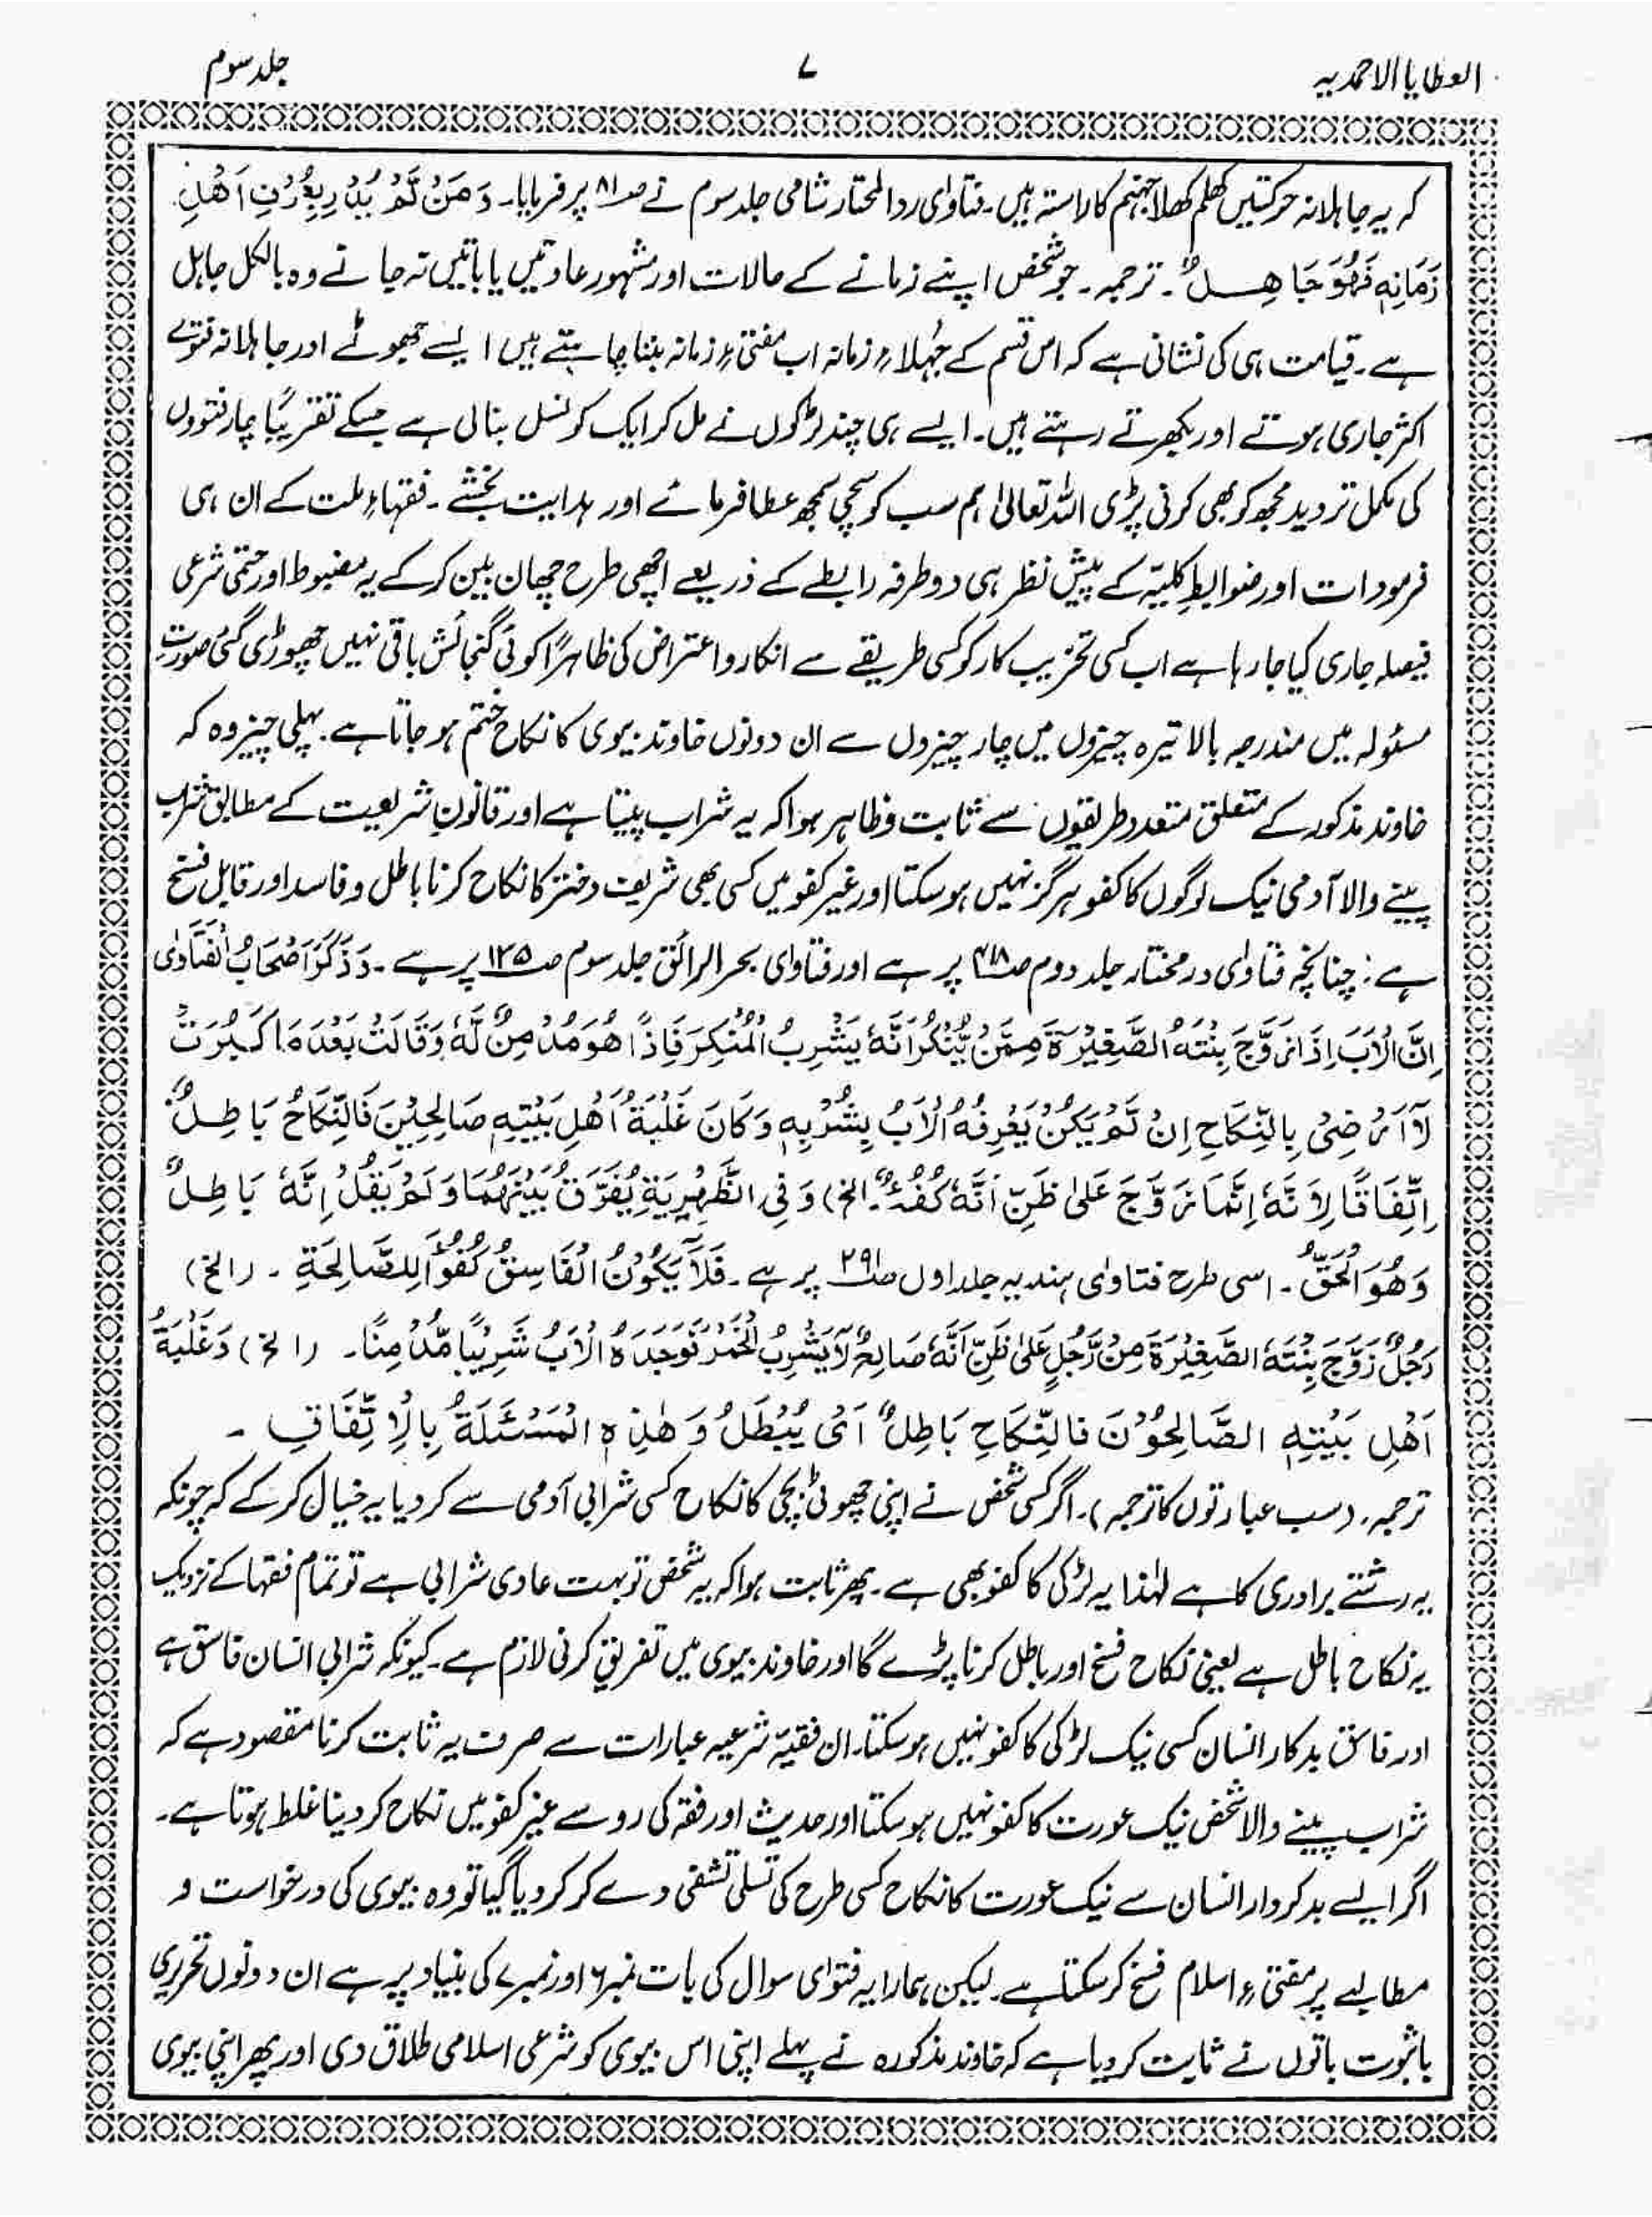 العطایا الاحمدیہ
۷
جلد سوم
کہ یہ جاہلانہ حرکتیں کھلم کھلا جہنم کا راستہ ہیں۔ فتاوٰی ردالمحتار شامی جلد سوم نے صـ۸۱ پر فرمایا۔ وَمَنْ لَّمْ یَدْرِ بِعُرْفِ اَھْلِ
زَمَانِہٖ فَھُوَ جَاھِلٌ۔ ترجمہ۔ جو شخص اپنے زمانے کے حالات اور مشہور عادتیں یا باتیں نہ جانے وہ بالکل جاہل
ہے۔ قیامت ہی کی نشانی ہے کہ اس قسم کے جُہلاءِ زمانہ اب مفتیٔ زمانہ بننا چاہتے ہیں ایسے جھوٹے اور جاہلانہ فتوے
اکثر جاری ہوتے اور بکھرتے رہتے ہیں۔ ایسے ہی چند لڑکوں نے مل کر ایک کونسل بنالی ہے جسکے تقریبًا چار فتووں
کی مکمل تردید مجھ کو بھی کرنی پڑی اللہ تعالیٰ ہم سب کو سچی سمجھ عطا فرمائے اور ہدایت بخشے۔ فقہاءِ ملت کے ان ہی
فرمودات اور ضوابطِ کلیّہ کے پیش نظر ہی دو طرفہ رابطے کے ذریعے اچھی طرح چھان بین کر کے یہ مضبوط اور حتمی شرعی
فیصلہ جاری کیا جا رہا ہے اب کسی تخریب کار کو کسی طریقے سے انکار و اعتراض کی ظاہرًا کوئی گنجائش باقی نہیں چھوڑی گئی صورتِ
مسئولہ میں مندرجہ بالا تیرہ چیزوں میں چار چیزوں سے ان دونوں خاوند بیوی کا نکاح ختم ہو جاتا ہے۔ پہلی چیز وہ کہ
خاوند مذکور کے متعلق متعدد طریقوں سے ثابت و ظاہر ہوا کہ یہ شراب پیتا ہے اور قانونِ شریعت کے مطابق شراب
پینے والا آدمی نیک لوگوں کا کفو ہرگز نہیں ہو سکتا اور غیر کفو میں کسی بھی شریف دختر کا نکاح کرنا باطل و فاسد اور قابلِ فسخ
ہے: چنانچہ فتاوٰی درمختار جلد دوم صـ۴۱۸ پر ہے اور فتاوٰی بحر الرائق جلد سوم صـ۱۲۵ پر ہے۔ وَذَکَرَ اَصْحَابُ الْفَتَاوٰی
اِنَّ الْاَبَ اِذَا زَوَّجَ بِنْتَہُ الصَّغِیْرَۃَ مِمَّنْ یُّنْکِرُ اَنَّہٗ یَشْرِبُ الْمُنْکِرَ فَاِذًا ھُوَ مُدْمِنٌ لَّہٗ وَقَالَتْ بَعْدَ مَا کَبُرَتْ
لَآ اَرْضٰی بِالنِّکَاحِ اِنْ لَّمْ یَکُنْ یَعْرِفُہُ الْاَبُ بِشُرْبِہٖ وَکَانَ غَلْبَۃُ اَھْلِ بَیْتِہٖ صَالِحِیْنَ فَالنِّکَاحُ بَاطِلٌ
اِتِّفَاقًا لِاَنَّہٗ اِنَّمَا زَوَّجَ عَلیٰ ظَنِّ اَنَّہٗ کُفُءٌ۔ الخ) وَفِی الظَّھِیْرِیَۃِ یُفَرَّقُ بَیْنَھُمَا وَلَمْ یَقُلْ اِنَّہٗ بَاطِلٌ
وَھُوَ الْحَقُّ۔ اسی طرح فتاوٰی ہندیہ جلد اول صـ۲۹۱ پر ہے۔ فَلَا یَکُوْنُ الْفَاسِقُ کُفُوًا لِلصَّالِحَۃِ۔ (الخ)
رَجُلٌ زَوَّجَ بِنْتَہُ الصَّغِیْرَۃَ مِنْ رَّجُلٍ عَلیٰ ظَنِّ اَنَّہٗ صَالِحٌ لَایَشْرِبُ الْخَمْرَ فَوَجَدَہُ الْاَبُ شَرِیْبًا مُّدْمِنًا۔ (الخ) وَغَلْبَۃُ
اَھْلِ بَیْتِہٖ الصَّالِحُوْنَ فَالنِّکَاحِ بَاطِلٌ اَیْ یُبْطَلُ وَھٰذِہِ الْمَسْئَلَۃُ بِالْاِتِّفَاقِ۔
ترجمہ۔ (سب عبارتوں کا ترجمہ)۔ اگر کسی شخص نے اپنی چھوٹی بچی کا نکاح کسی شرابی آدمی سے کر دیا یہ خیال کر کے کہ چونکہ
یہ رشتے برادری کا ہے لہٰذا یہ لڑکی کا کفو بھی ہے۔ پھر ثابت ہوا کہ یہ شخص تو بہت عادی شرابی ہے تو تمام فقہا کے نزدیک
یہ نکاح باطل ہے یعنی نکاح فسخ اور باطل کرنا پڑے گا اور خاوند بیوی میں تفریق کرنی لازم ہے۔ کیونکہ شرابی انسان فاسق ہے
اور فاسق بدکار انسان کسی نیک لڑکی کا کفو نہیں ہو سکتا۔ ان فقہیّہ شرعیہ عبارات سے صرف یہ ثابت کرنا مقصود ہے کہ
شراب پینے والا شخص نیک عورت کا کفو نہیں ہو سکتا اور حدیث اور فقہ کی رو سے غیر کفو میں نکاح کر دینا غلط ہوتا ہے۔
اگر ایسے بدکردار انسان سے نیک عورت کا نکاح کسی طرح کی تسلی تشفی دے کر کر دیا گیا تو وہ بیوی کی درخواست و
مطالبے پر مفتیٔ اسلام فسخ کر سکتا ہے۔ لیکن ہمارا یہ فتوٰی سوال کی بات نمبر ۶ اور نمبر ۷ کی بنیاد پر ہے ان دونوں تحریری
باثبوت باتوں نے ثابت کر دیا ہے کہ خاوند مذکورہ نے پہلے اپنی اس بیوی کو شرعی اسلامی طلاق دی اور پھر اپنی بیوی